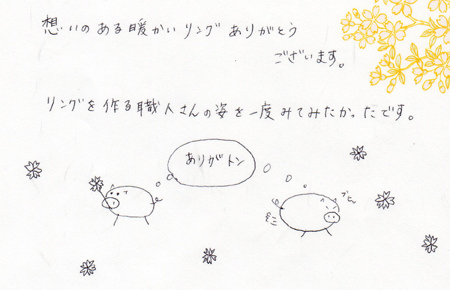 想いのある暖かいリングありがとう
ございます。
リングを作る職人さんの姿を一度みてみたかったです。
ありがトン